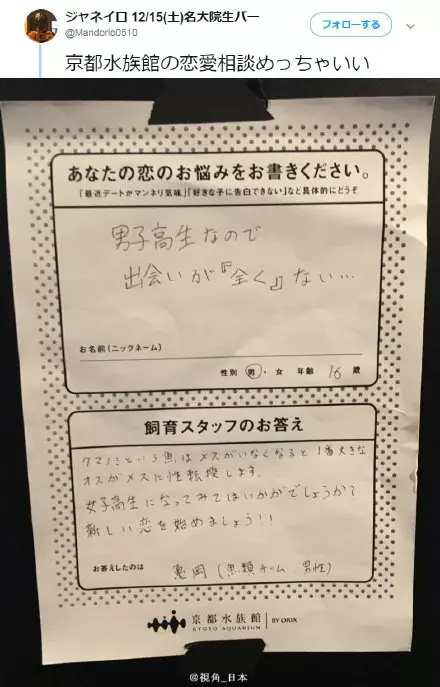 ジャネイロ 12/15(土)名大院生バー
@Mandorio0510
フォローする
京都水族館の恋愛相談めっちゃいい
あなたの恋のお悩みをお書きください。
「最近デートがマンネリ気味」「好きな子に告白できない」など具体的にどうぞ
男子高生なので
出会いが『全く』ない…
お名前(ニックネーム)
性別 男・女 年齢 16 歳
飼育スタッフのお答え
クマノミという魚はメスがいなくなると1番大きな
オスがメスに性転換します。
女子高生になってみてはいかがでしょうか?
新しい恋を始めましょう!!
お答えしたのは 恵岡(魚類チーム、男性)
京都水族館 BY ORIX
KYOTO AQUARIUM
@視角_日本